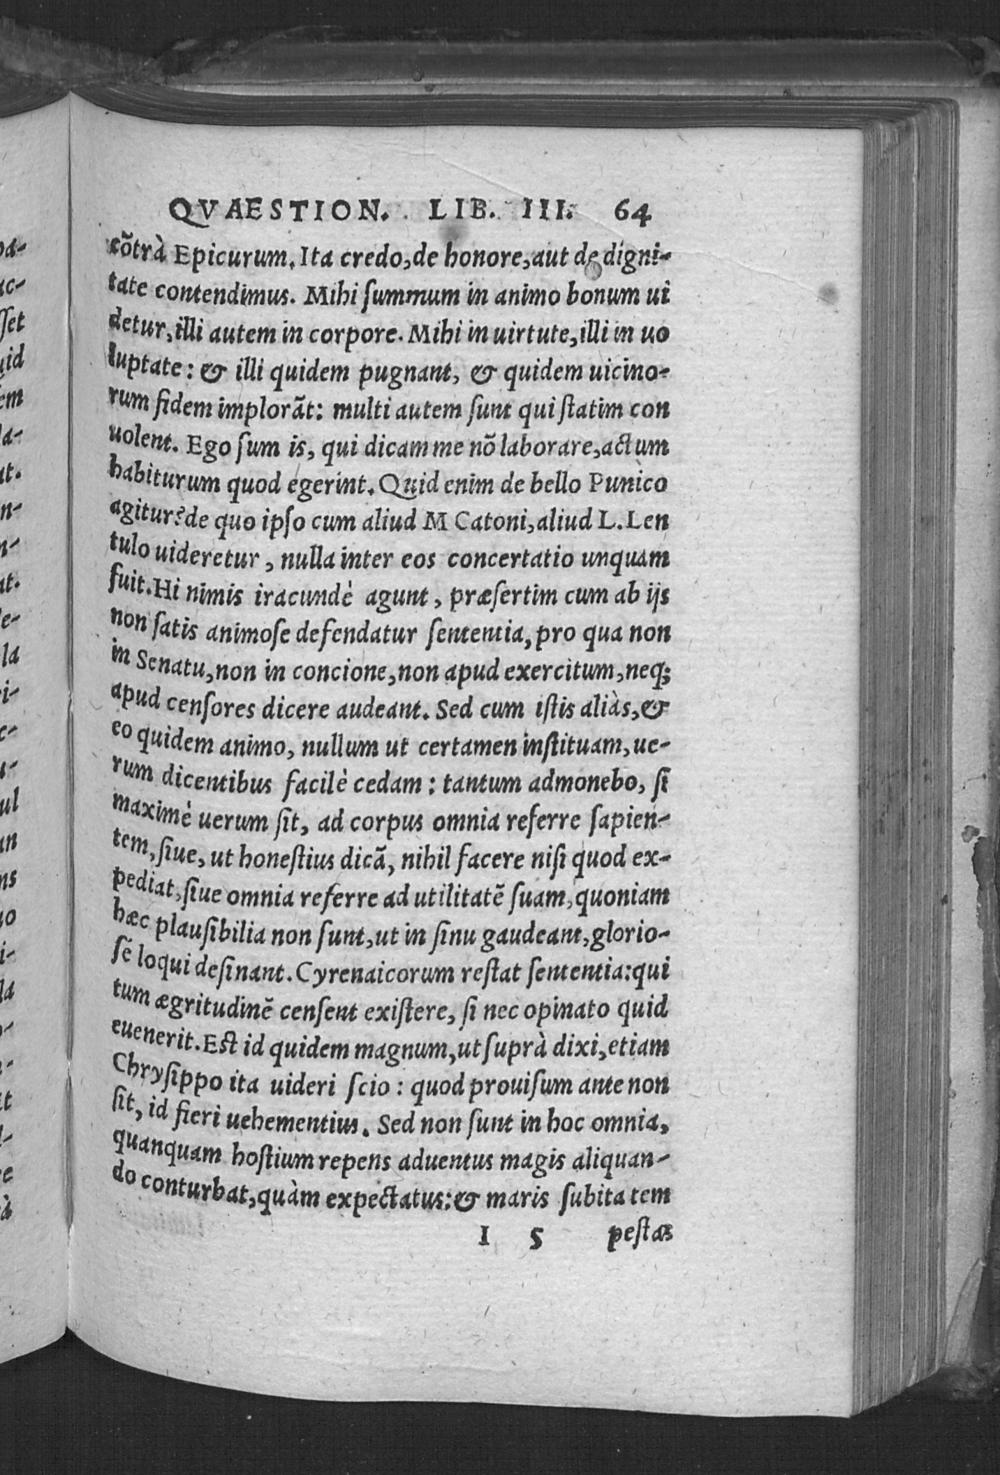 QVAESTION. LIB. III. 64
cõtrà Epicurum. Ita credo, de honore, aut de digni-
tate contendimus. Mihi ſummum in animo bonum ui
detur, illi autem in corpore. Mihi in uirtute, illi in uo
luptate: & illi quidem pugnant, & quidem uicino-
rum fidem implorãt: multi autem ſunt qui ſtatim con
uolent. Ego ſum is, qui dicam me nõ laborare, actum
habiturum quod egerint. Quid enim de bello Punico
agitur? de quo ipſo cum aliud M Catoni, aliud L. Len
tulo uideretur, nulla inter eos concertatio unquam
fuit. Hi nimis iracundè agunt, præſertim cum ab ijs
non ſatis animoſe defendatur ſententia, pro qua non
in Senatu, non in concione, non apud exercitum, neq;
apud cenſores dicere audeant. Sed cum iſtis aliàs, &
eo quidem animo, nullum ut certamen inſtituam, ue-
rum dicentibus facilè cedam: tantum admonebo, ſi
maximè uerum ſit, ad corpus omnia referre ſapien-
tem, ſiue, ut honeſtius dicã, nihil facere niſi quod ex-
pediat, ſiue omnia referre ad utilitatẽ ſuam, quoniam
hæc plauſibilia non ſunt, ut in ſinu gaudeant, glorio-
ſè loqui deſinant. Cyrenaicorum reſtat ſententia: qui
tum ægritudinẽ cenſent exiſtere, ſi nec opinato quid
euenerit. Eſt id quidem magnum, ut ſuprà dixi, etiam
Chryſippo ita uideri ſcio: quod prouiſum ante non
ſit, id fieri uehementius. Sed non ſunt in hoc omnia,
quanquam hoſtium repens aduentus magis aliquan-
do conturbat, quàm expectatus: & maris ſubita tem
I 5 peſtas